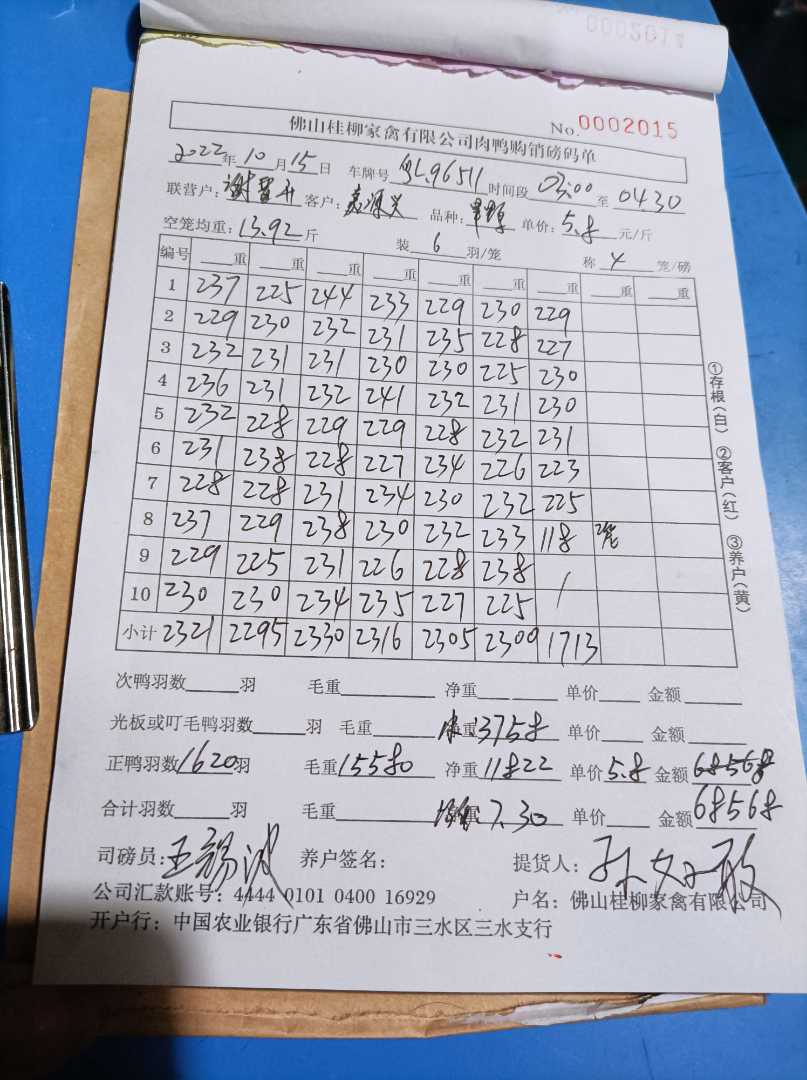 0002014
No.0002015
佛山桂柳家禽有限公司肉鸭购销磅码单
2022年10月15日 车牌号 96511 时间段 03:00 至 04.30
联营户: 客户: 源兴 品种: 单价: 5.8 元/斤
空笼均重: 13.92 斤 装 6 羽/笼 称 4 笼/磅
编号 重 重 重 重 重 重 重 重 重
1 237 225 244 233 229 230 229
2 229 230 232 231 235 228 227
3 232 231 231 230 230 225 230
4 236 231 232 241 232 231 230
5 232 228 229 229 228 232 231
6 231 238 228 227 234 226 223
7 228 228 231 234 230 232 225
8 237 229 238 230 232 233 118 2笼
9 229 225 231 226 228 238 /
10 230 230 234 235 227 225
小计 2321 2295 2330 2316 2305 2300 1713
①存根(白) ②客户(红) ③养户(黄)
次鸭羽数 羽 毛重 净重 单价 金额
光板或叮毛鸭羽数 羽 毛重 净重 3758 单价 金额
正鸭羽数 1620 羽 毛重 15580 净重 11822 单价 5.8 金额 68568
合计羽数 羽 毛重 净重 7.30 单价 金额 68568
司磅员: 王锡波 养户签名: 提货人:
公司汇款账号: 4444 0101 0400 16929 户名: 佛山桂柳家禽有限公司
开户行: 中国农业银行广东省佛山市三水区三水支行